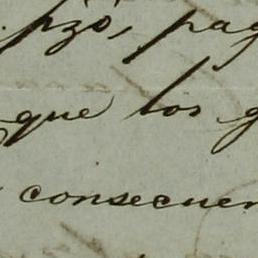 pzó, pag
que los g
consecuen